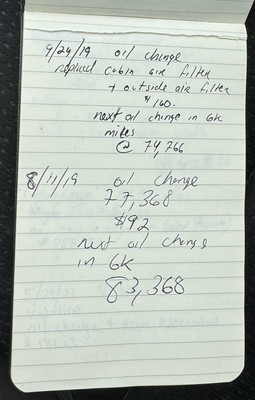 9/24/19 oil change
replaced cabin air filter
+ outside air filter
$160.
next oil change in 6k
miles
@ 74,766
8/11/19 oil change
77,368
$92
next oil change
in 6k
83,368